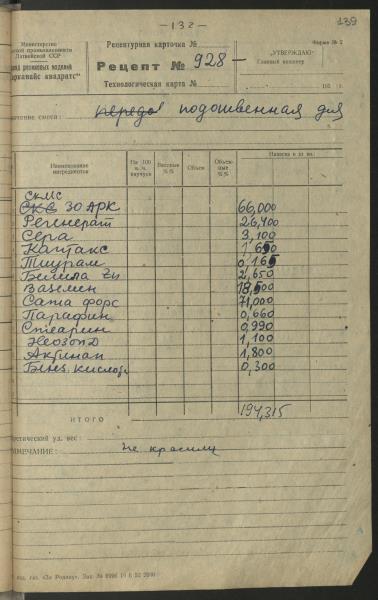 - 132 - 139
Министерство
промышленности
Латвийской ССР
завод резиновых изделий
"Саркайс квадратс"
Рецептурная карточка №
Рецепт № 928 –
Технологическая карта №
Форма № 2
„УТВЕРЖДАЮ"
Главный инженер
195 г.
Назначение смеси: подошвенная для
Наименование ингредиентов
На 100 в. ч. каучука
Весовые %%
Объем
Объемные %%
Навеска в кг на:
СКМС
30 АРК 66,000
Регенерат 26,400
Сера 3,100
Каптакс 1,650
Тиурам 0,165
Белила Zn 2,650
Вазелин 18,500
Сажа форс 71,000
Парафин 0,660
Стеарин 0,990
Неозон Д 1,100
Актинап 1,800
Бенз. кислота 0,300
ИТОГО 194,315
Теоретический уд. вес:
ПРИМЕЧАНИЕ: не красили
газ. «За Родину». Зак. №